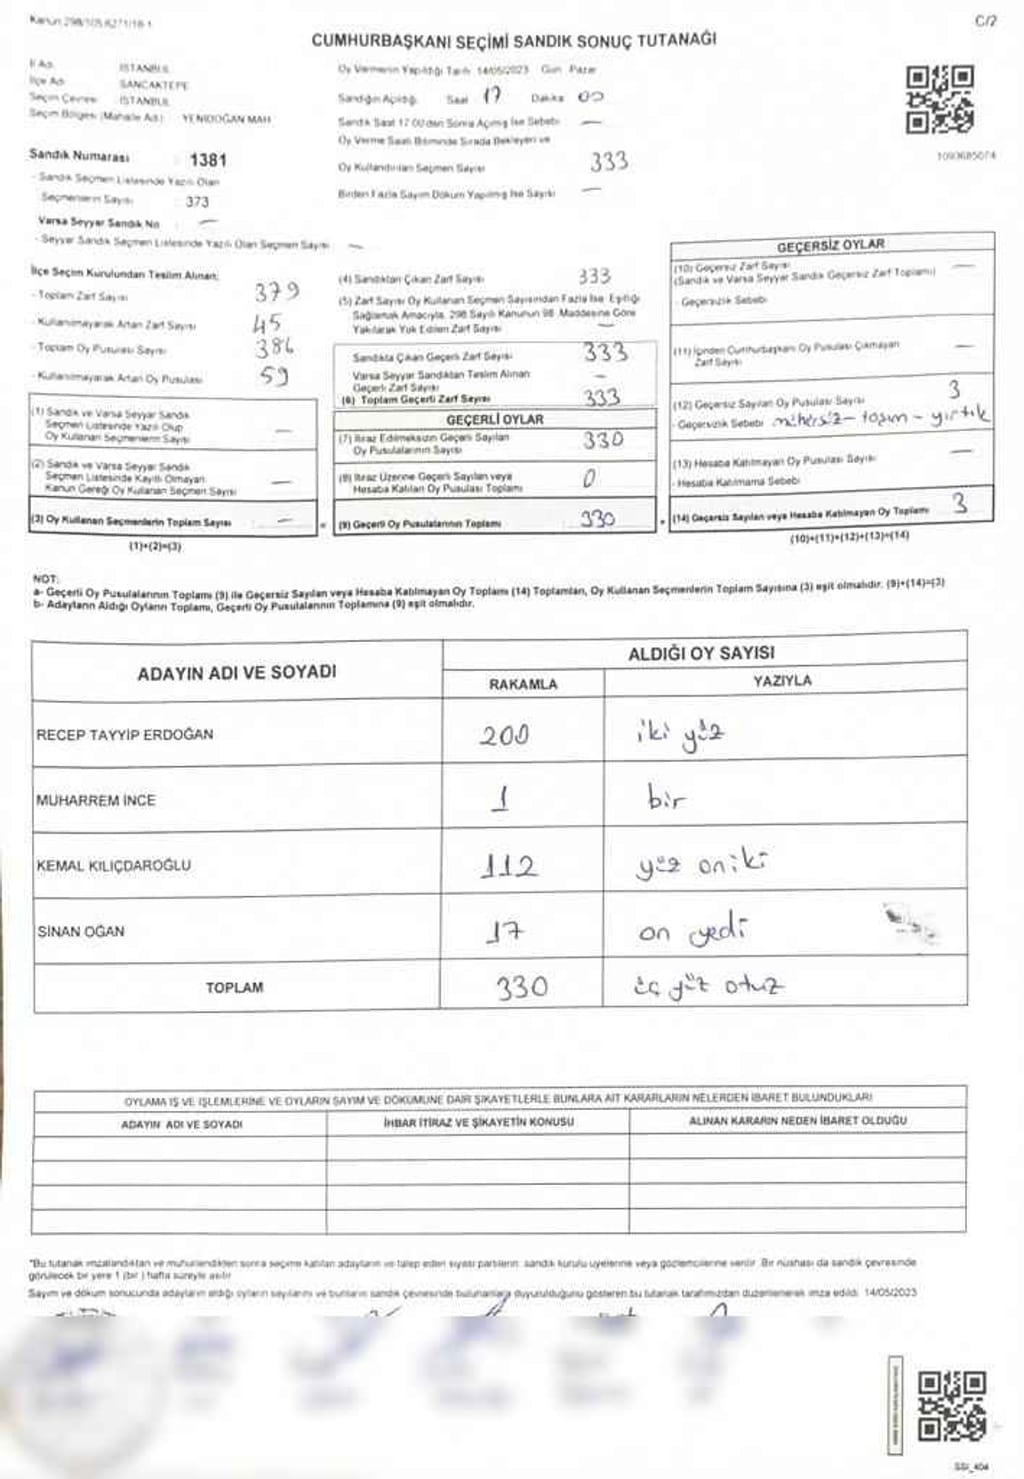 Kanun 298/105.6271/16-1
C/2
CUMHURBAŞKANI SEÇİMİ SANDIK SONUÇ TUTANAĞI
İl Adı İSTANBUL
İlçe Adı SANCAKTEPE
Seçim Çevresi İSTANBUL
Seçim Bölgesi (Mahalle Adı) YENİDOĞAN MAH
Sandık Numarası : 1381
- Sandık Seçmen Listesinde Yazılı Olan
Seçmenlerin Sayısı : 373
Varsa Seyyar Sandık No : —
- Seyyar Sandık Seçmen Listesinde Yazılı Olan Seçmen Sayısı —
Oy Vermenin Yapıldığı Tarih 14/05/2023 Gün Pazar
Sandığın Açıldığı Saat 17 Dakika 00
Sandık Saat 17:00'den Sonra Açılmış İse Sebebi —
Oy Verme Saati Bitiminde Sırada Bekleyen ve
Oy Kullandırılan Seçmen Sayısı 333
Birden Fazla Sayım Döküm Yapılmış İse Sayısı —
1090685074
İlçe Seçim Kurulundan Teslim Alınan;
- Toplam Zarf Sayısı 379
- Kullanılmayarak Artan Zarf Sayısı 45
- Toplam Oy Pusulası Sayısı 386
- Kullanılmayarak Artan Oy Pusulası 59
(1) Sandık ve Varsa Seyyar Sandık
Seçmen Listesinde Yazılı Olup
Oy Kullanan Seçmenlerin Sayısı —
(2) Sandık ve Varsa Seyyar Sandık
Seçmen Listesinde Kayıtlı Olmayan
Kanun Gereği Oy Kullanan Seçmen Sayısı —
(3) Oy Kullanan Seçmenlerin Toplam Sayısı —
(1)+(2)=(3)
(4) Sandıktan Çıkan Zarf Sayısı 333
(5) Zarf Sayısı Oy Kullanan Seçmen Sayısından Fazla İse, Eşitliği
Sağlamak Amacıyla, 298 Sayılı Kanunun 98. Maddesine Göre
Yakılarak Yok Edilen Zarf Sayısı —
Sandıkta Çıkan Geçerli Zarf Sayısı 333
Varsa Seyyar Sandıktan Teslim Alınan
Geçerli Zarf Sayısı —
(6) Toplam Geçerli Zarf Sayısı 333
GEÇERLİ OYLAR
(7) İtiraz Edilmeksizin Geçerli Sayılan
Oy Pusulalarının Sayısı 330
(8) İtiraz Üzerine Geçerli Sayılan veya
Hesaba Katılan Oy Pusulası Toplamı 0
(9) Geçerli Oy Pusulalarının Toplamı 330
GEÇERSİZ OYLAR
(10) Geçersiz Zarf Sayısı —
(Sandık ve Varsa Seyyar Sandık Geçersiz Zarf Toplamı)
- Geçersizlik Sebebi
(11) İçinden Cumhurbaşkanı Oy Pusulası Çıkmayan
Zarf Sayısı —
(12) Geçersiz Sayılan Oy Pusulası Sayısı 3
- Geçersizlik Sebebi mühürsüz - taşım - yırtık
(13) Hesaba Katılmayan Oy Pusulası Sayısı —
- Hesaba Katılmama Sebebi
(14) Geçersiz Sayılan veya Hesaba Katılmayan Oy Toplamı 3
(10)+(11)+(12)+(13)=(14)
NOT:
a- Geçerli Oy Pusulalarının Toplamı (9) ile Geçersiz Sayılan veya Hesaba Katılmayan Oy Toplamı (14) Toplamları, Oy Kullanan Seçmenlerin Toplam Sayısına (3) eşit olmalıdır. (9)+(14)=(3)
b- Adayların Aldığı Oyların Toplamı, Geçerli Oy Pusulalarının Toplamına (9) eşit olmalıdır.
ADAYIN ADI VE SOYADI
ALDIĞI OY SAYISI
RAKAMLA YAZIYLA
RECEP TAYYİP ERDOĞAN 200 iki yüz
MUHARREM İNCE 1 bir
KEMAL KILIÇDAROĞLU 112 yüz on iki
SİNAN OĞAN 17 on yedi
TOPLAM 330 üç yüz otuz
OYLAMA İŞ VE İŞLEMLERİNE VE OYLARIN SAYIM VE DÖKÜMÜNE DAİR ŞİKAYETLERLE BUNLARA AİT KARARLARIN NELERDEN İBARET BULUNDUKLARI
ADAYIN ADI VE SOYADI İHBAR İTİRAZ VE ŞİKAYETİN KONUSU ALINAN KARARIN NEDEN İBARET OLDUĞU
*Bu tutanak imzalandıktan ve mühürlendikten sonra seçime katılan adayların ve talep eden siyasi partilerin, sandık kurulu üyelerine veya gözlemcilerine verilir. Bir nüshası da sandık çevresinde
görülecek bir yere 1 (bir) hafta süreyle asılır
Sayım ve döküm sonucunda adayların aldığı oyların sayılarını ve bunların sandık çevresinde bulunanlara duyurulduğunu gösteren bu tutanak tarafımızdan düzenlenerek imza edildi. 14/05/2023
SSI_404